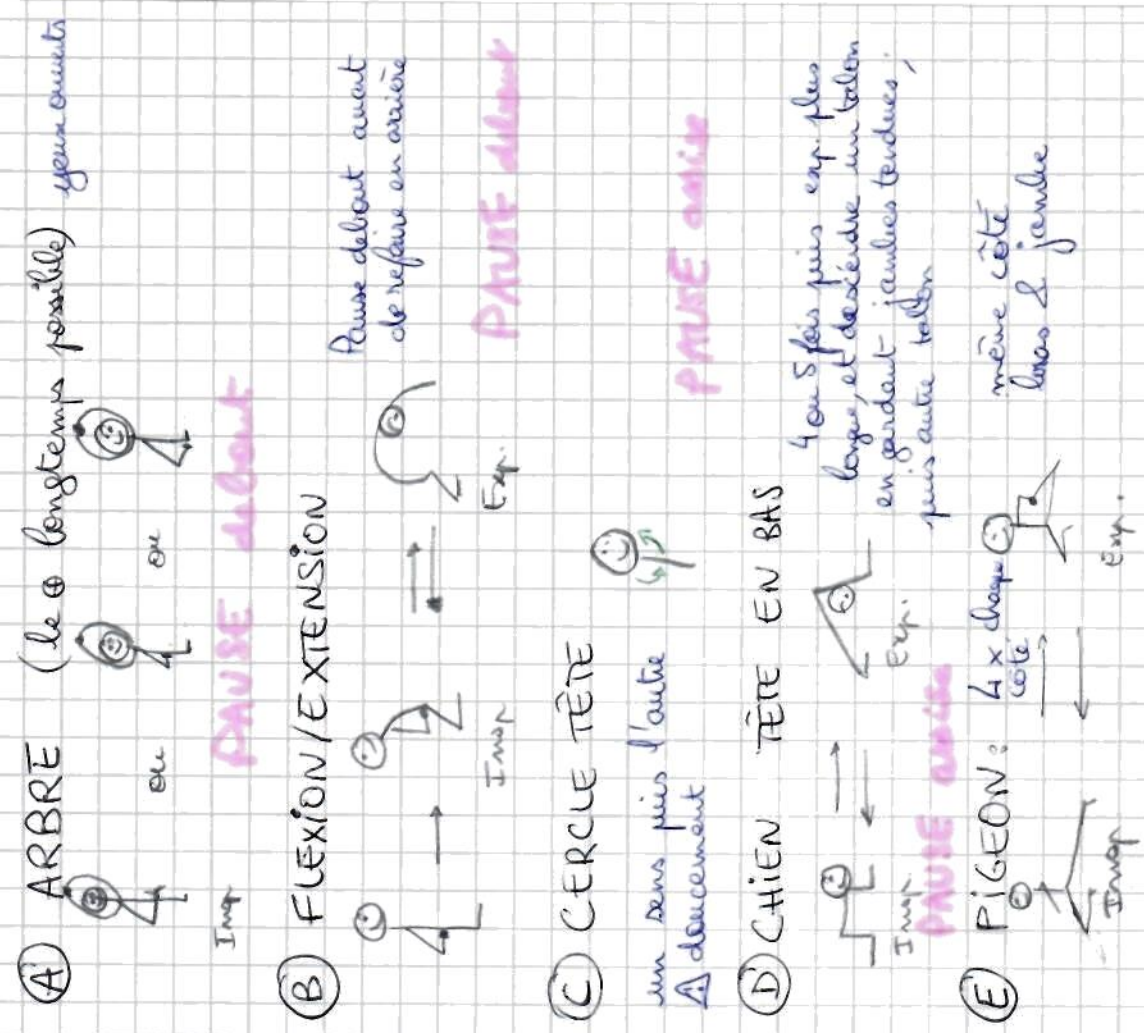 A ARBRE (le ⊕ longtemps possible) yeux ouverts
ou ou
Insp
PAUSE debout
B FLEXION/EXTENSION
Pause debout avant
de refaire en arrière
Insp Exp.
PAUSE debout
C CERCLE TÊTE
un sens puis l'autre
⚠ doucement
PAUSE assise
D CHIEN TÊTE EN BAS
4 ou 5 fois puis exp. plus
longue, et descendre un talon
en gardant jambes tendues,
puis autre talon
Insp. Exp.
PAUSE assise
E PIGEON: 4x chaque
côté
même côté
bras & jambe
Insp Exp.